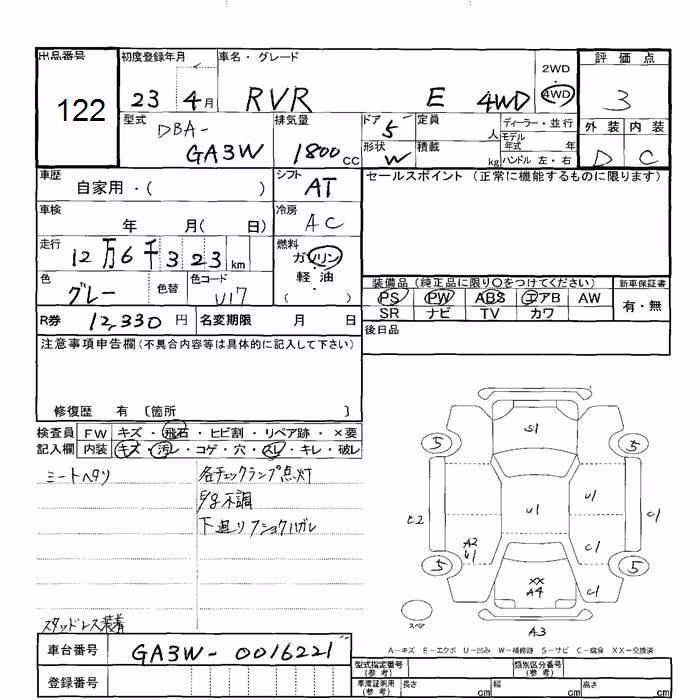 出品番号
122
初度登録年月
23 4月
車名・グレード
RVR E 4WD
2WD
・
4WD
評価点
3
型式
DBA-
GA3W
排気量
1800cc
ドア
5
定員
人
ディーラー・並行
モデル年式 年
形状
W
積載
kg
ハンドル 左・右
外装 内装
D C
車歴
自家用・( )
シフト
AT
セールスポイント (正常に機能するものに限ります)
車検
年 月( 日)
冷房
AC
走行
12万6千323km
燃料
ガソリン
・
軽油
・
( )
色
グレー
色替
色コード
U17
装備品 (純正品に限り○をつけてください)
新車保証書
PS PW ABS エアB AW
有・無
SR ナビ TV カワ
R券 12,330円
名変期限 月 日
後日品
注意事項申告欄(不具合内容等は具体的に記入して下さい)
修復歴 有 〔箇所 〕
検査員
記入欄
FW キズ・飛石・ヒビ割・リペア跡・×要
内装 キズ・汚レ・コゲ・穴・スレ・キレ・破レ
シートヘタリ
各チェックランプ点灯
不調
下廻り
スタッドレス装着
S1
5 5
U1 U1
C1
A2
U1
C1
5 5
XX
A4
C1
スペア
A3
A－キズ E－エクボ U－凹み W－補修跡 S－サビ C－腐食 XX－交換済
車台番号
GA3W-0016221
登録番号
型式指定番号
(参考)
類別区分番号
(参考)
車庫証明用
(参考)
長さ cm
幅 cm
高さ cm